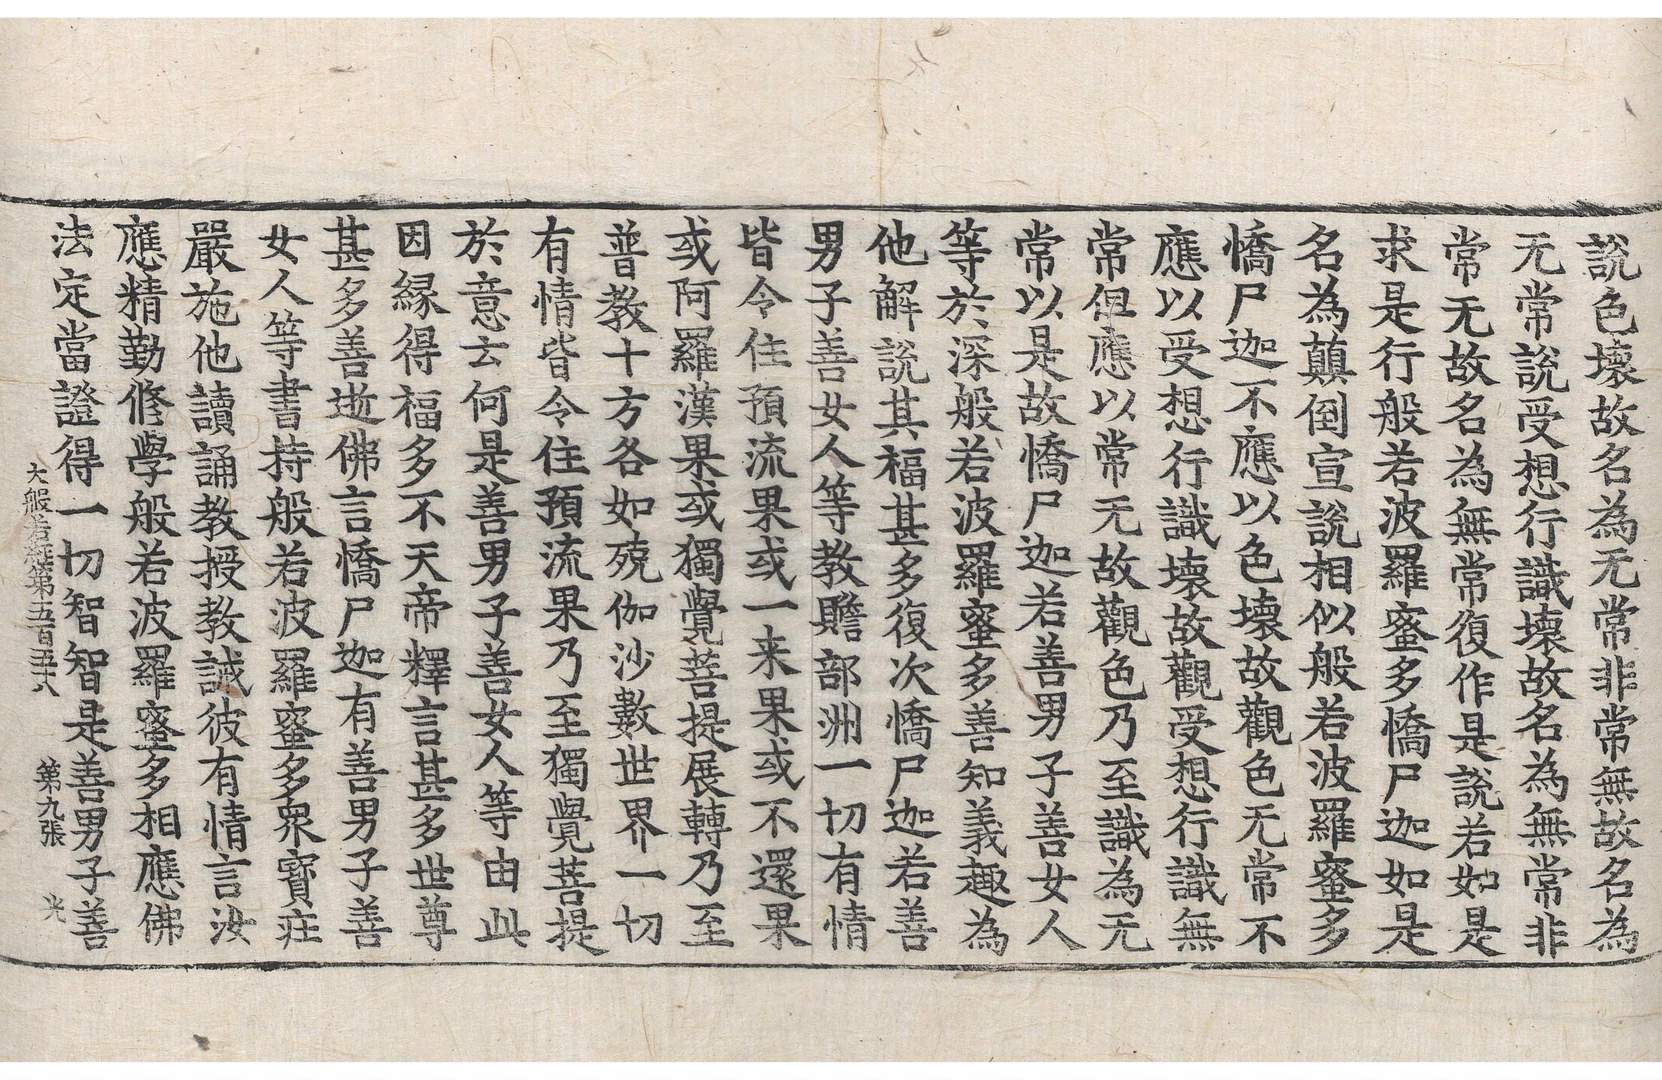 說色壞故名為无常非常無故名為
无常說受想行識壞故名為無常非
常无故名為無常復作是說若如是
求是行般若波羅蜜多憍尸迦如是
名為顛倒宣說相似般若波羅蜜多
憍尸迦不應以色壞故觀色无常不
應以受想行識壞故觀受想行識無
常但應以常无故觀色乃至識為无
常以是故憍尸迦若善男子善女人
等於深般若波羅蜜多善知義趣為
他解說其福甚多復次憍尸迦若善
男子善女人等教贍部洲一切有情
皆令住預流果或一来果或不還果
或阿羅漢果或獨覺菩提展轉乃至
普教十方各如殑伽沙數世界一切
有情皆令住預流果乃至獨覺菩提
於意云何是善男子善女人等由此
因緣得福多不天帝釋言甚多世尊
甚多善逝佛言憍尸迦有善男子善
女人等書持般若波羅蜜多衆寶莊
嚴施他讀誦教授教誡彼有情言汝
應精勤修學般若波羅蜜多相應佛
法定當證得一切智智是善男子善
大般若經第五百五十八 第九張 光